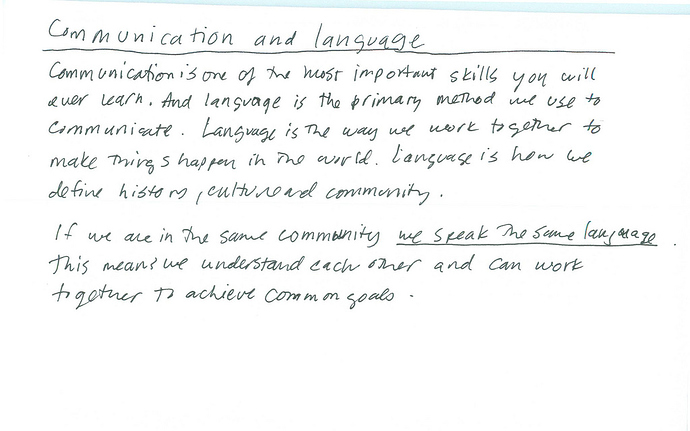 Communication and language
Communication is one of the most important skills you will
ever learn. And language is the primary method we use to
communicate. Language is the way we work together to
make things happen in the world. Language is how we
define history, culture and community.
If we are in the same community we speak the same language.
This means we understand each other and can work
together to achieve common goals.